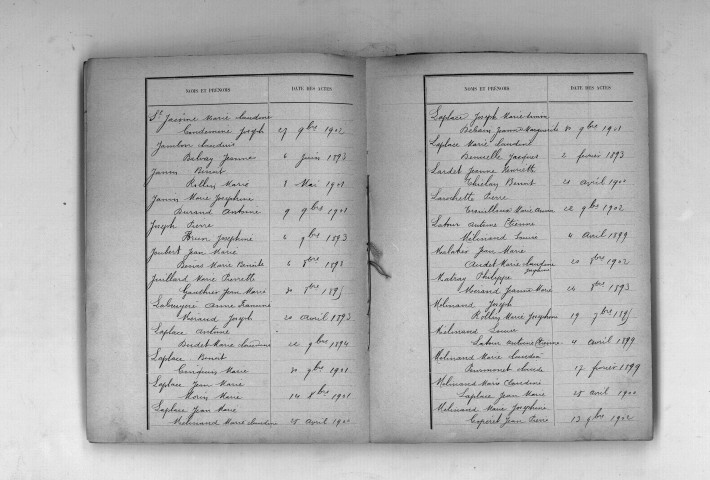 NOMS ET PRÉNOMS DATE DES ACTES
St Jacome Marie Claudine
Condemine Joseph 27 9bre 1902
Jambon Claudius
Belvay Jeanne 6 Juin 1893
Janin Benoit
Rollin Marie 8 Mai 1901
Janin Marie Josephine
Durand Antoine 9 9bre 1901
Joseph Pierre
Brun Josephine 6 9bre 1893
Joubert Jean Marie
Marie Benoite 6 8bre 1892
Juillard Marie Pierrette
Gauthier Jean Marie 30 8bre 1895
Labruyere Anne Francine
Morand Joseph 20 avril 1893
Laplace Antoine
Budet Marie Claudine 22 9bre 1894
Laplace Benoit
Marie 30 9bre 1901
Laplace Jean Marie
Morin Marie 14 8bre 1901
Laplace Jean Marie
Melinand Marie Claudine 25 avril 1900
NOMS ET PRÉNOMS DATE DES ACTES
Laplace Joseph Marie
Jeanne Marguerite 30 9bre 1901
Laplace Marie Claudine
Jacques 2 fevrier 1893
Lardet Jeanne Henriette
Benoit 21 avril 1900
Larochette Pierre
Marie Anne 22 9bre 1902
Latour Antoine Etienne
Melinand Louise 4 Avril 1899
Jean Marie
Audet Marie Claudine Josephine 20 8bre 1902
Matray Philippe
Morand Jeanne Marie 24 8bre 1893
Melinand Joseph
Rollin Marie Josephine 19 7bre 1895
Melinand Louise
Latour Antoine Etienne 4 avril 1899
Melinand Marie Claudine
Claude 17 fevrier 1899
Melinand Marie Claudine
Laplace Jean Marie 25 avril 1900
Melinand Marie Josephine
Coperet Jean Pierre 13 9bre 1902